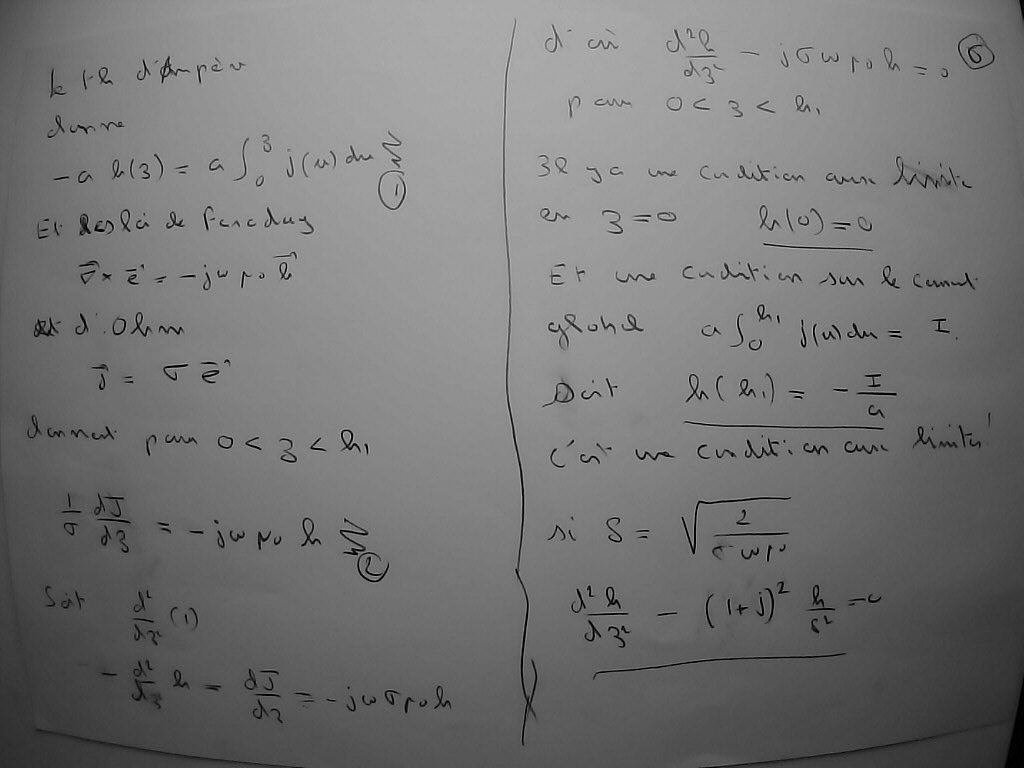 le th d'Ampère
donne
-a h(z) = a ∫₀ᶻ j(u) du (1)
Et de Faraday
∇⃗ × e⃗ = -jω μ₀ h⃗
et d'Ohm
j⃗ = σ e⃗
donnent pour 0 < z < h₁
1/σ dJ/dz = -jω μ₀ h (2)
Soit d²/dz² (1)
- d²/dz h = dJ/dz = -jωσμ₀h
d'où d²h/dz² - jσωμ₀h = 0 (5)
pour 0 < z < h₁
Il y a une condition aux limite
en z = 0 h(0) = 0
Et une condition sur le courant
global a ∫₀ʰ¹ j(u)du = I.
Soit h(h₁) = - I/a
C'est une condition aux limites!
si δ = √(2/σωμ₀)
d²h/dz² - (1+j)² h/δ² = 0